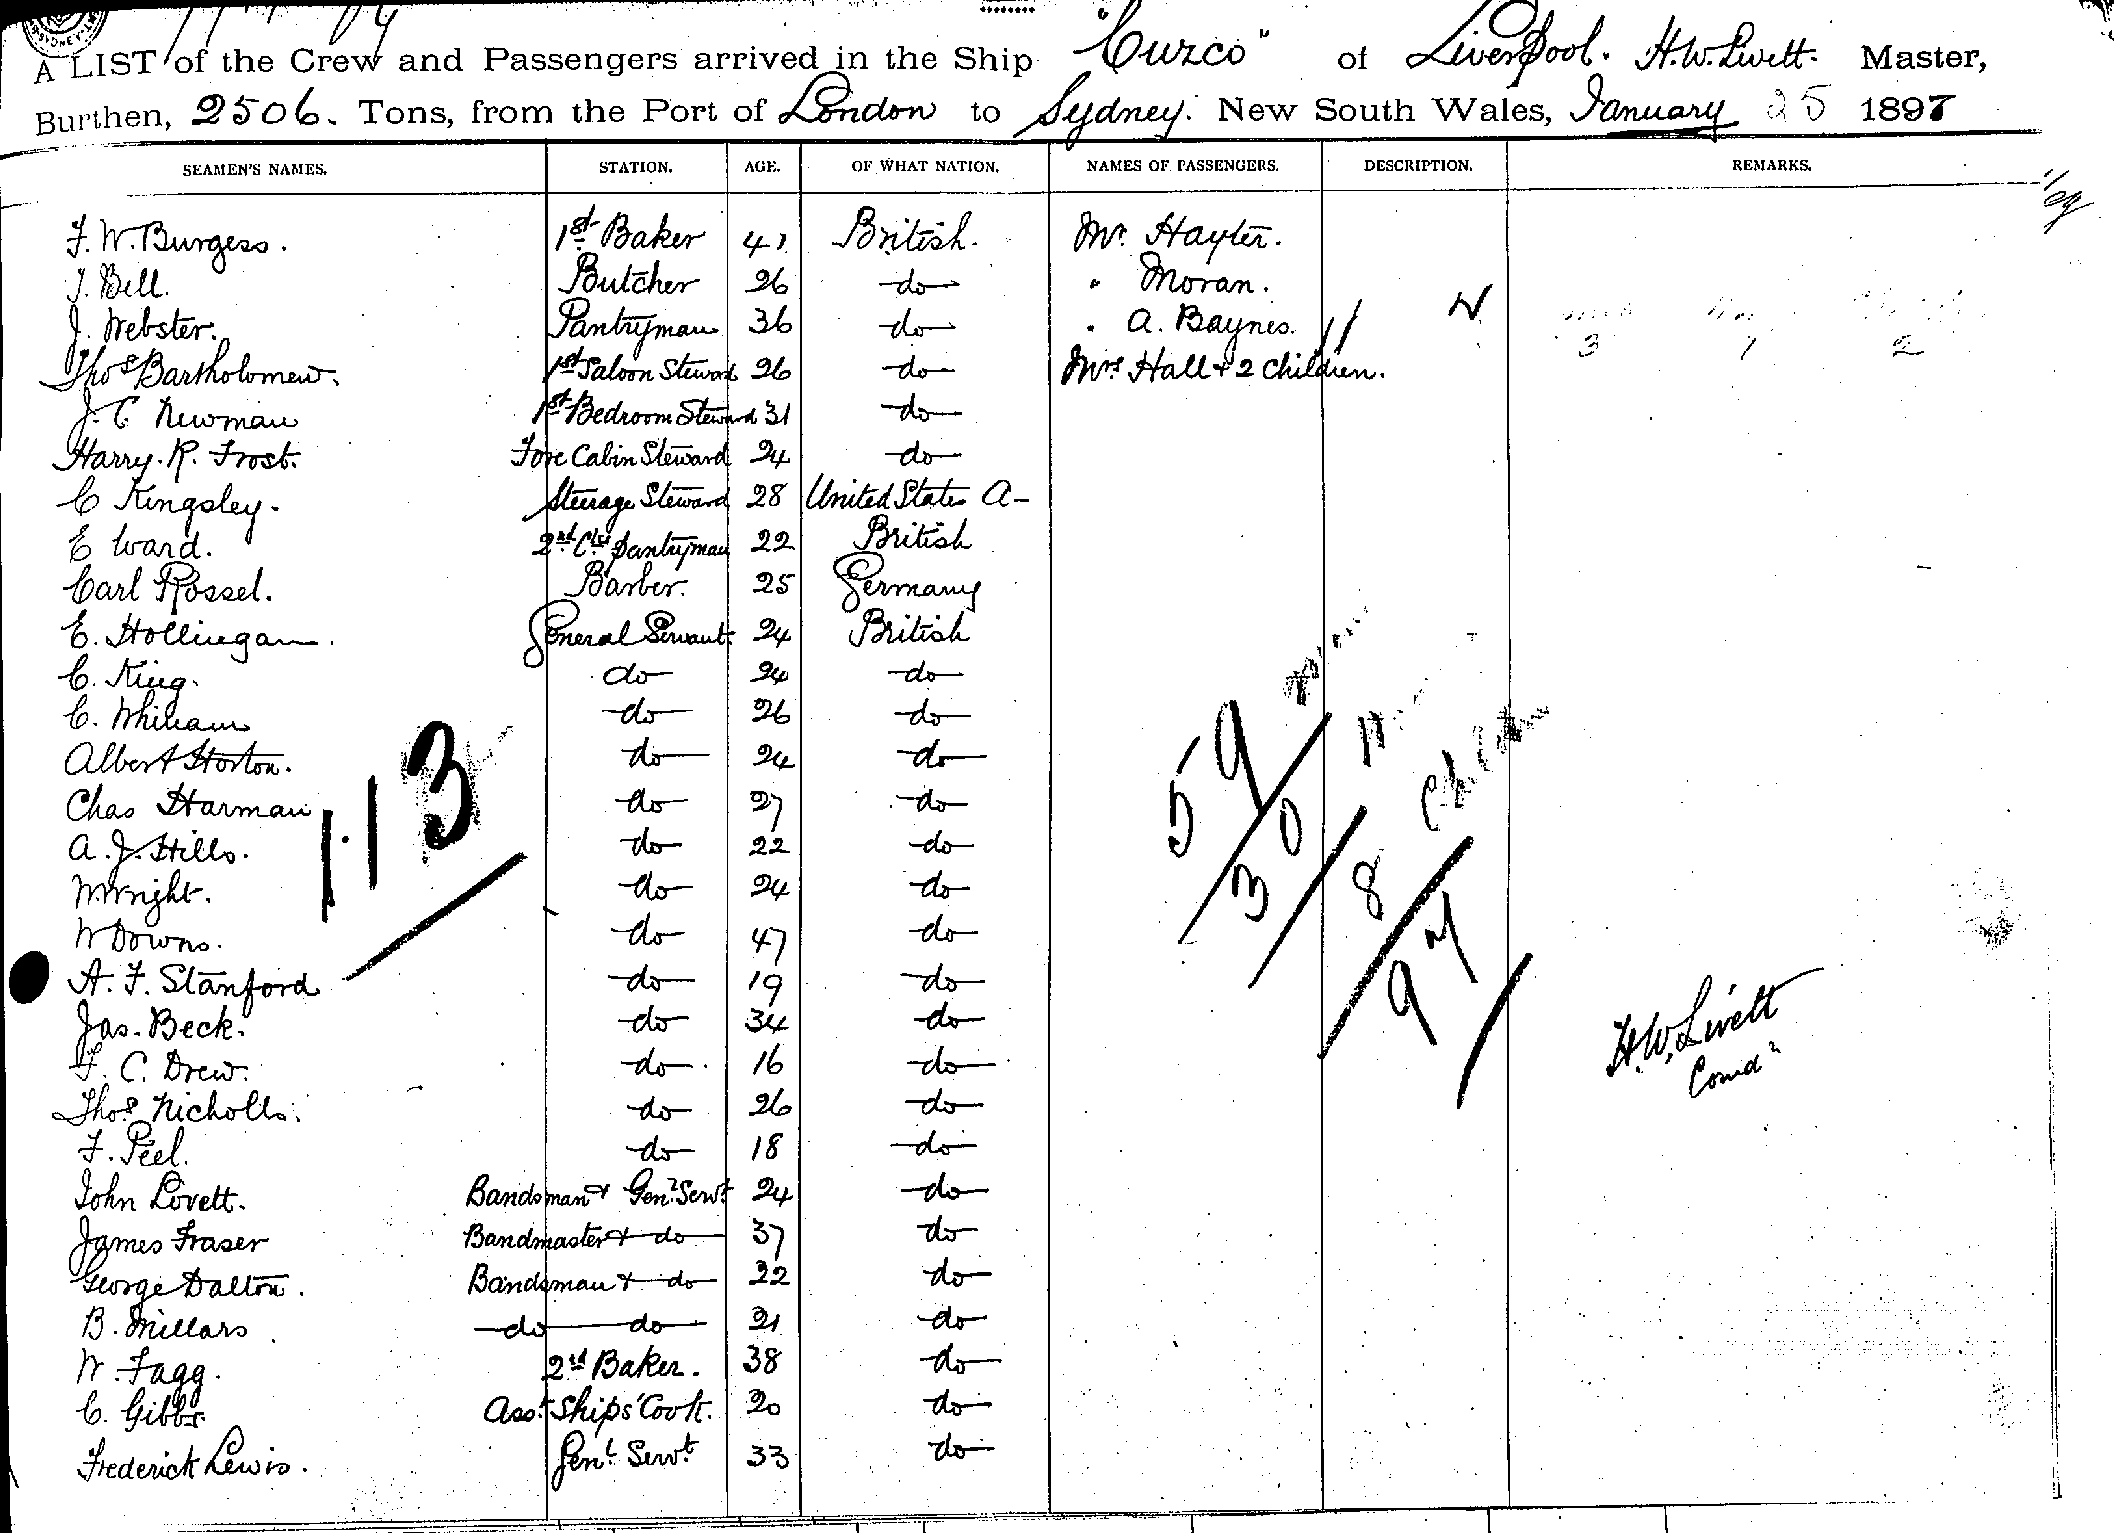 A LIST of the Crew and Passengers arrived in the Ship "Cuzco" of Liverpool. H.W. Livett. Master,
Burthen, 2506. Tons, from the Port of London to Sydney. New South Wales, January 25 1897
SEAMEN'S NAMES. STATION. AGE. OF WHAT NATION. NAMES OF PASSENGERS. DESCRIPTION. REMARKS.
F. W. Burgess. 1st Baker 41 British. Mr. Hayter.
J. Bell. Butcher 26 do " Moran.
J. Webster. Pantryman 36 do " A. Baynes. 3 1 2
Thos Bartholomew. 1st Saloon Steward 26 do Mrs Hall + 2 Children.
J. C Newman 1st Bedroom Steward 31 do
Harry. R. Frost. Fore Cabin Steward 24 do
C Kingsley. Steerage Steward 28 United States A-
E Ward. 2nd Cls Pantryman 22 British
Carl Rossel. Barber. 25 Germany
E. Hollingan. General Servant. 24 British
C. King. do 24 do
C. Whineam do 26 do
Albert Horton. do 24 do
Chas Harman do 27 do
A. J. Hills. do 22 do
W. Wright. do 24 do
W Downs. do 47 do
A. F. Stanford do 19 do
Jas. Beck. do 34 do
F. C. Drew. do 16 do
Thos Nicholls. do 26 do
F. Peel. do 18 do
John Lovett. Bandsman + Genl Servt 24 do
James Fraser Bandmaster + do 37 do
George Dalton. Bandsman + do 22 do
B. Millars do do 21 do
W. Fagg. 2nd Baker. 38 do
C. Gibbs. Asst Ships' Cook. 20 do
Frederick Lewis. Genl Servt 33 do
113
59
30
8
97
H.W. Livett
Comdr